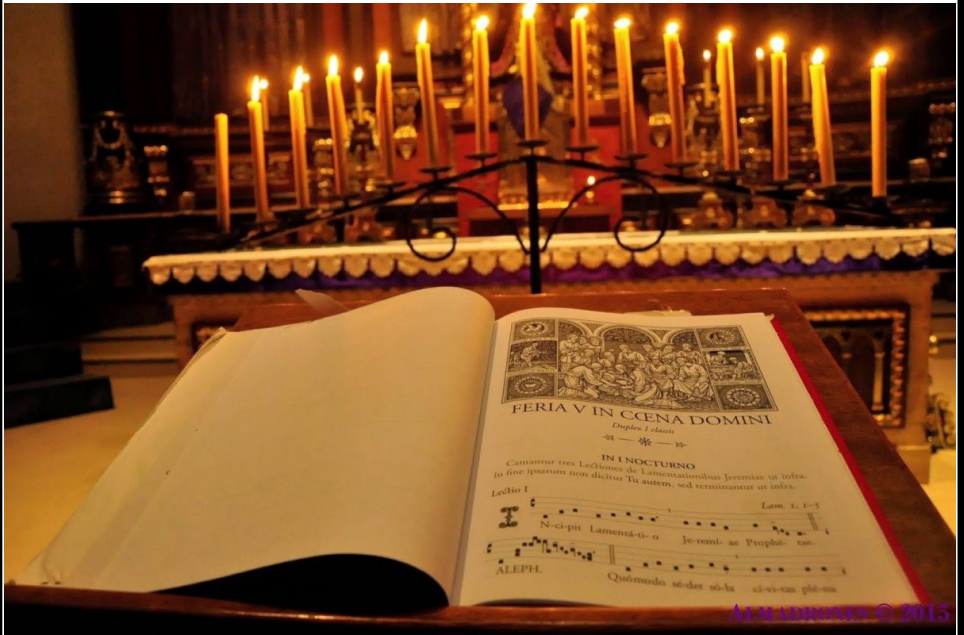 FERIA V IN CŒNA DOMINI
Duplex I classis
IN I NOCTURNO
Cantantur tres Lectiones de Lamentationibus Jeremiæ ut infra.
In fine ipsarum non dicitur Tu autem, sed terminantur ut infra.
Lectio I
Lam. 1, 1–5
I
N-cí-pit Lamentá-ti-o Je-remí-ae Prophé-tae.
ALEPH. Quómodo sé-det so-la cí-vi-tas plé-na
ALMADRONES © 2015